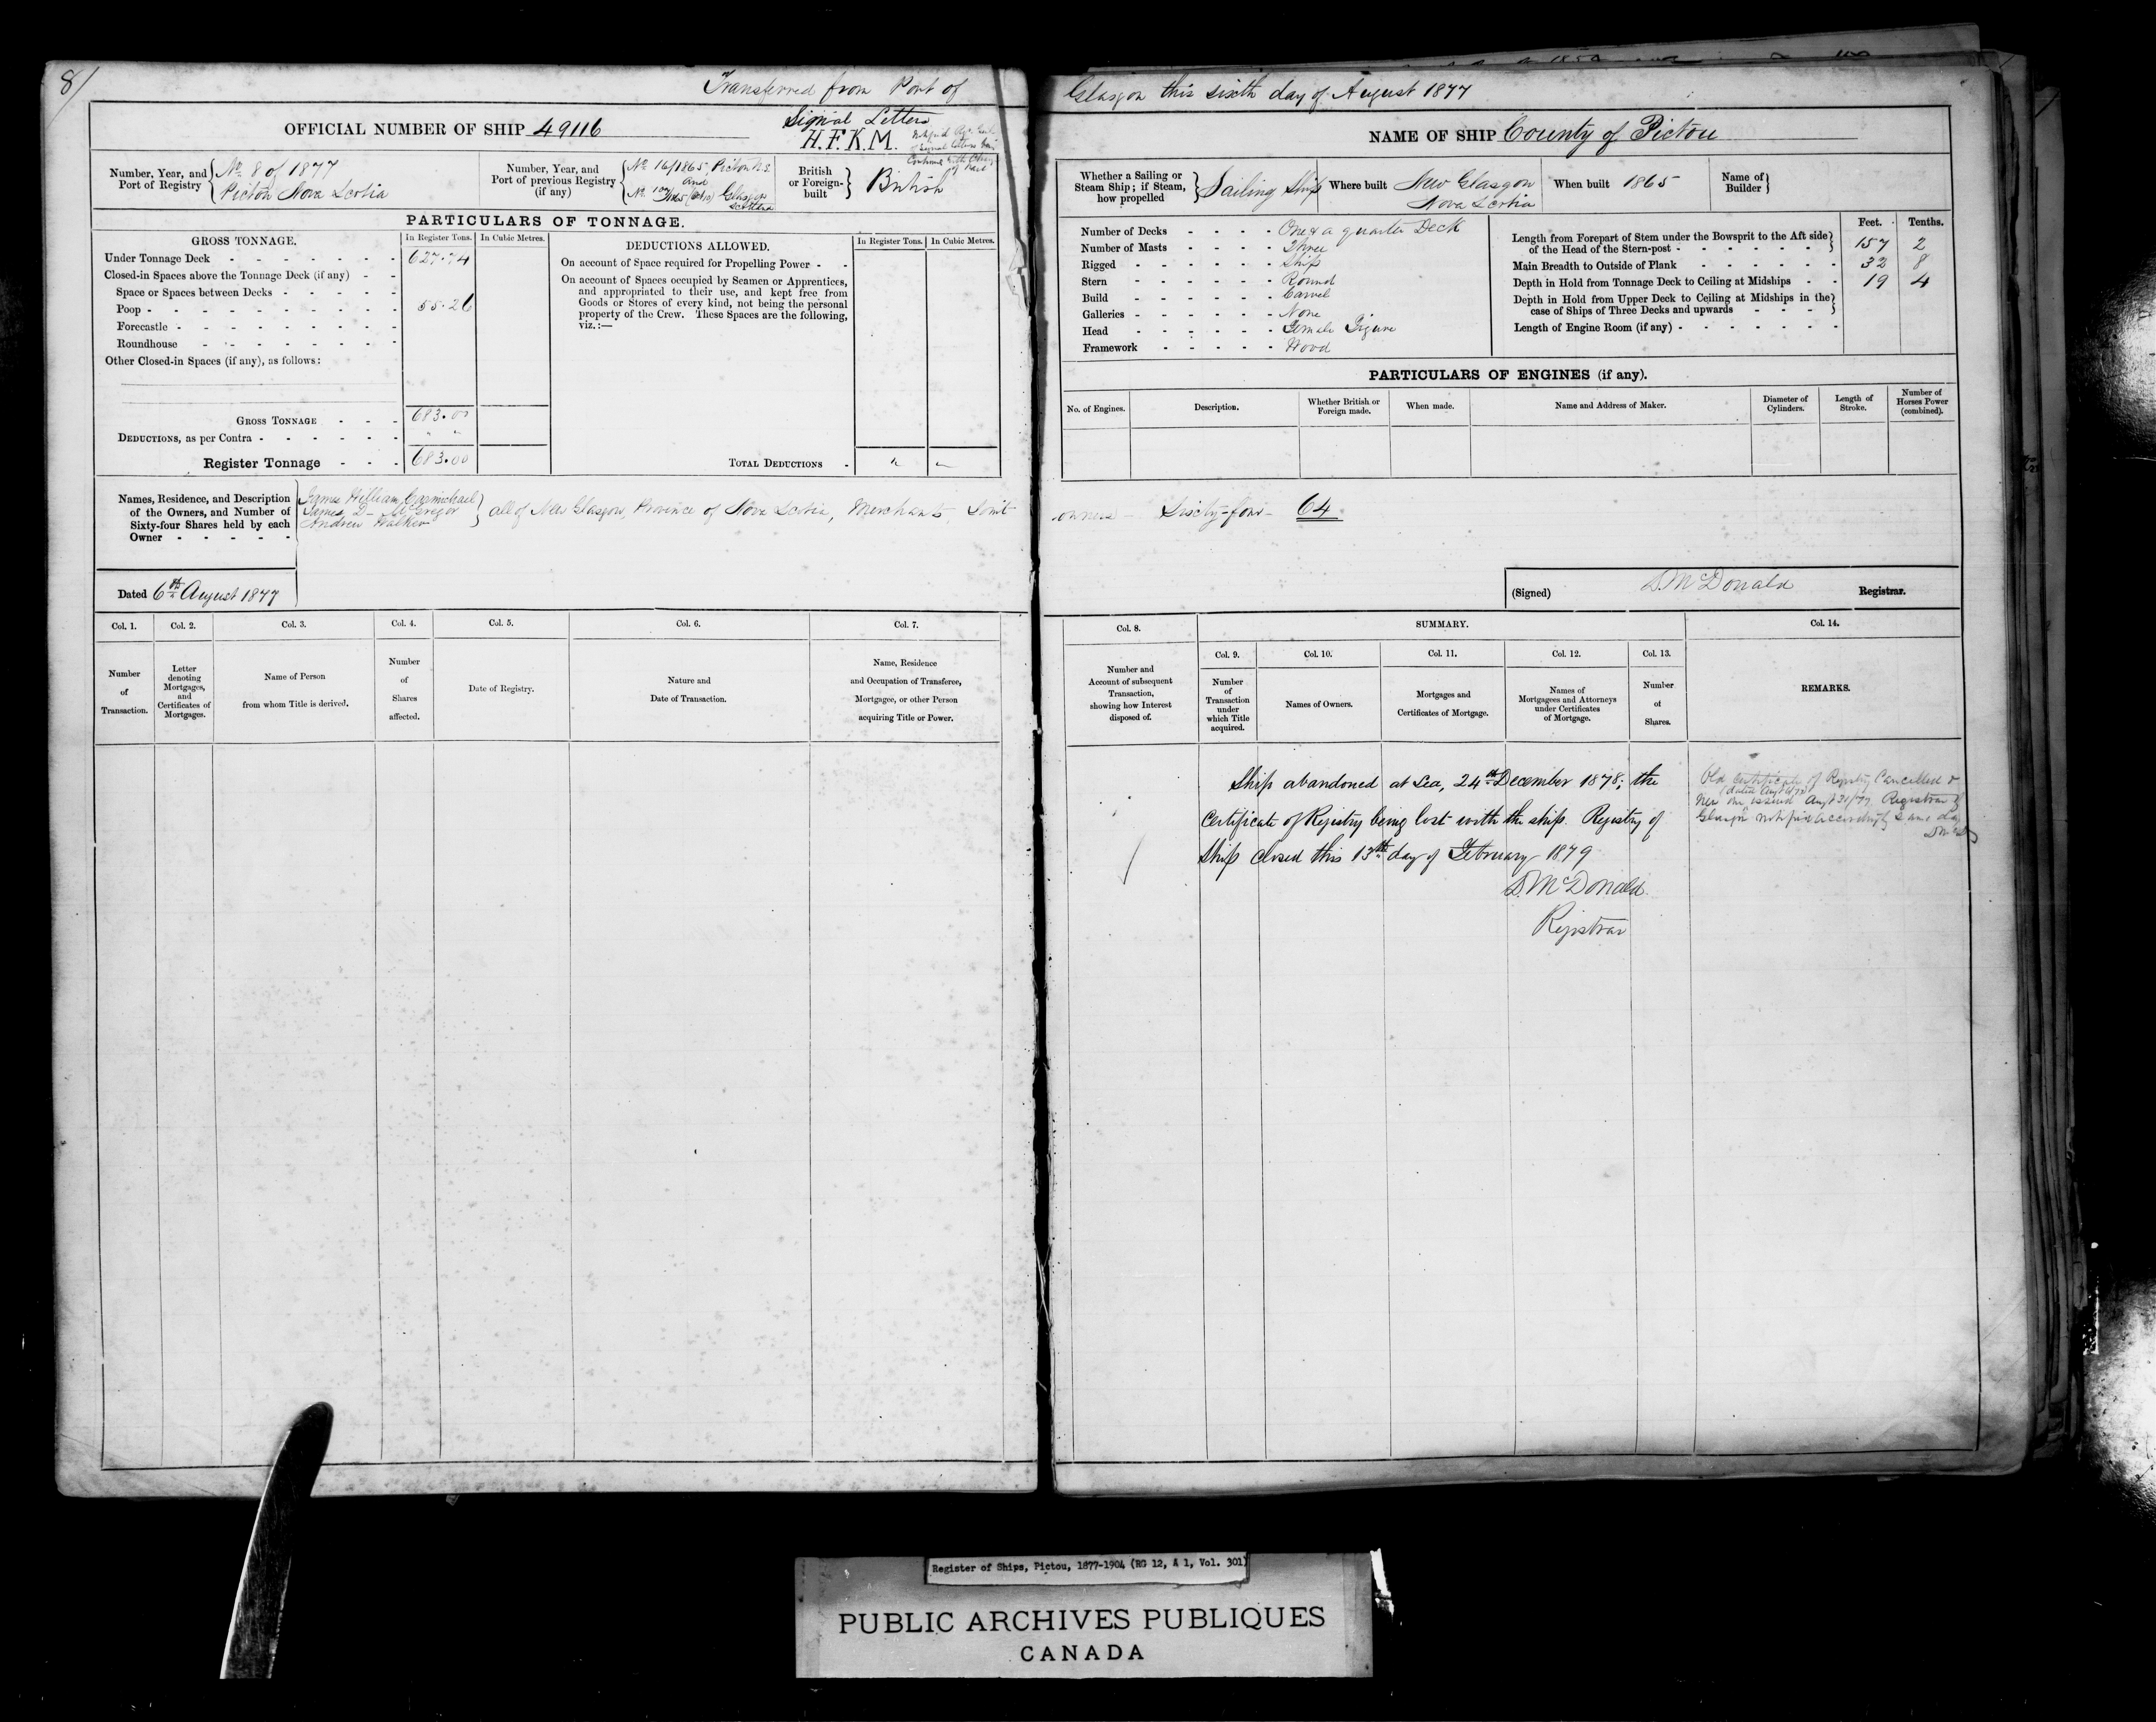 8/
Transferred from Port of
Glasgow this sixth day of August 1877
OFFICIAL NUMBER OF SHIP 49116
Signal Letters
H.F.K.M.
Number, Year, and Port of Registry
No. 8 of 1877
Pictou Nova Scotia
Number, Year, and Port of previous Registry (if any)
No. 16/1865 Pictou N.S.
and
Glasgow
Scotland
British or Foreign-built
British
PARTICULARS OF TONNAGE.
GROSS TONNAGE.
In Register Tons.
In Cubic Metres.
Under Tonnage Deck 627.74
Closed-in Spaces above the Tonnage Deck (if any)
Space or Spaces between Decks
Poop 55.26
Forecastle
Roundhouse
Other Closed-in Spaces (if any), as follows:
GROSS TONNAGE 683.00
DEDUCTIONS, as per Contra
Register Tonnage 683.00
DEDUCTIONS ALLOWED.
In Register Tons.
In Cubic Metres.
On account of Space required for Propelling Power
On account of Spaces occupied by Seamen or Apprentices,
and appropriated to their use, and kept free from
Goods or Stores of every kind, not being the personal
property of the Crew. These Spaces are the following,
viz.:—
TOTAL DEDUCTIONS
Names, Residence, and Description
of the Owners, and Number of
Sixty-four Shares held by each
Owner
James William Carmichael
James D. McGregor
Andrew Walker
all of New Glasgow, Province of Nova Scotia, Merchants, Joint
owners Sixty-four 64
Dated 6th August 1877
NAME OF SHIP County of Pictou
Whether a Sailing or
Steam Ship; if Steam,
how propelled
Sailing Ship
Where built New Glasgow
Nova Scotia
When built 1865
Name of Builder
Number of Decks One & a quarter Deck
Number of Masts Three
Rigged Ship
Stern Round
Build Carvel
Galleries None
Head Female Figure
Framework Wood
Feet. Tenths.
Length from Forepart of Stem under the Bowsprit to the Aft side
of the Head of the Stern-post 157 2
Main Breadth to Outside of Plank 32 8
Depth in Hold from Tonnage Deck to Ceiling at Midships 19 4
Depth in Hold from Upper Deck to Ceiling at Midships in the
case of Ships of Three Decks and upwards
Length of Engine Room (if any)
PARTICULARS OF ENGINES (if any).
No. of Engines.
Description.
Whether British or Foreign made.
When made.
Name and Address of Maker.
Diameter of Cylinders.
Length of Stroke.
Number of Horses Power (combined).
(Signed) D. McDonald Registrar.
Col. 1.
Col. 2.
Col. 3.
Col. 4.
Col. 5.
Col. 6.
Col. 7.
Number of Transaction.
Letter denoting Mortgages, and Certificates of Mortgages.
Name of Person from whom Title is derived.
Number of Shares affected.
Date of Registry.
Nature and Date of Transaction.
Name, Residence and Occupation of Transferee, Mortgagee, or other Person acquiring Title or Power.
Col. 8.
SUMMARY.
Col. 14.
Col. 9.
Col. 10.
Col. 11.
Col. 12.
Col. 13.
Number and Account of subsequent Transaction, showing how Interest disposed of.
Number of Transaction under which Title acquired.
Names of Owners.
Mortgages and Certificates of Mortgage.
Names of Mortgagees and Attorneys under Certificates of Mortgage.
Number of Shares.
REMARKS.
Ship abandoned at Sea, 24th December 1878; the
Certificate of Registry being lost with the ship. Registry of
Ship closed this 13th day of February 1879
D. McDonald
Registrar
Old certificate of Registry Cancelled &
New one issued Augt 31/77 Registrar of
Glasgow notified accordingly same day
Register of Ships, Pictou, 1877-1904 (RG 12, A 1, Vol. 301)
PUBLIC ARCHIVES PUBLIQUES
CANADA